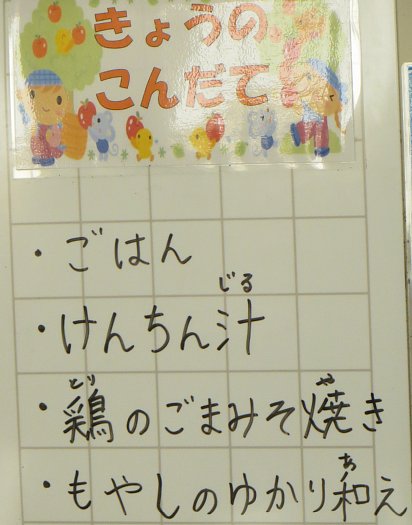 きょうの
こんだて
・ごはん
じる
・けんちん汁
とり や
・鶏のごまみそ焼き
あ
・もやしのゆかり和え